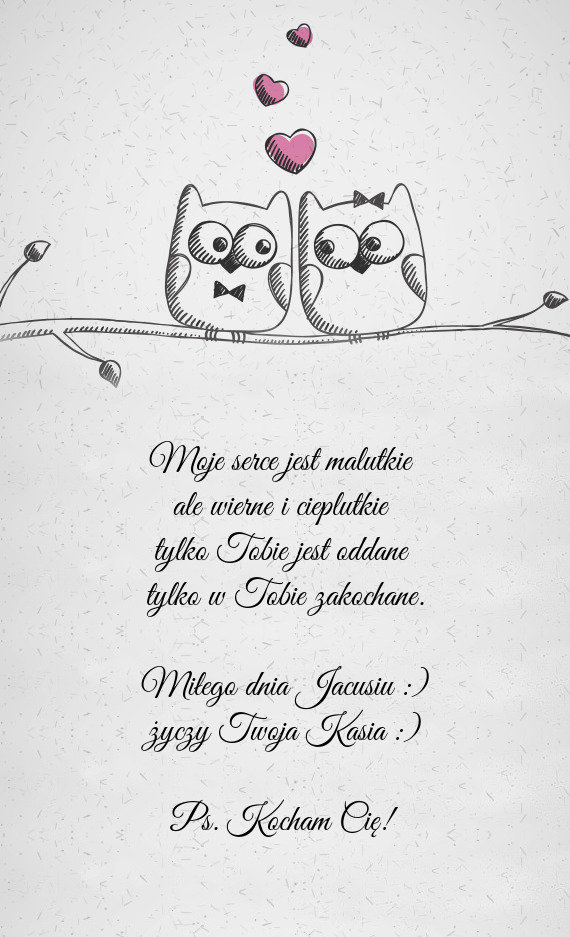 Moje serce jest malutkie
ale wierne i cieplutkie
tylko Tobie jest oddane
tylko w Tobie zakochane.
Miłego dnia Jacusiu :)
życzy Twoja Kasia :)
Ps. Kocham Cię!